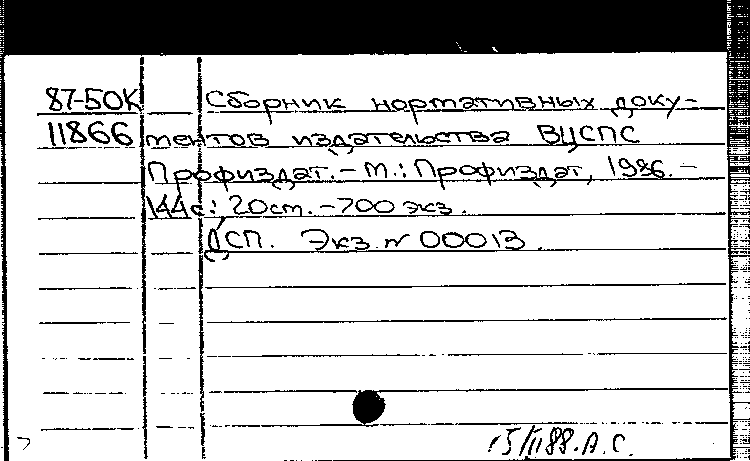 87-50К Сборник нормативных доку-
11866 ментов издательства ВЦСПС
Профиздат. - М.: Профиздат, 1986. -
144с.; 20см. - 700 экз.
ДСП. Экз. № 00013.
15/III 88. А.С.